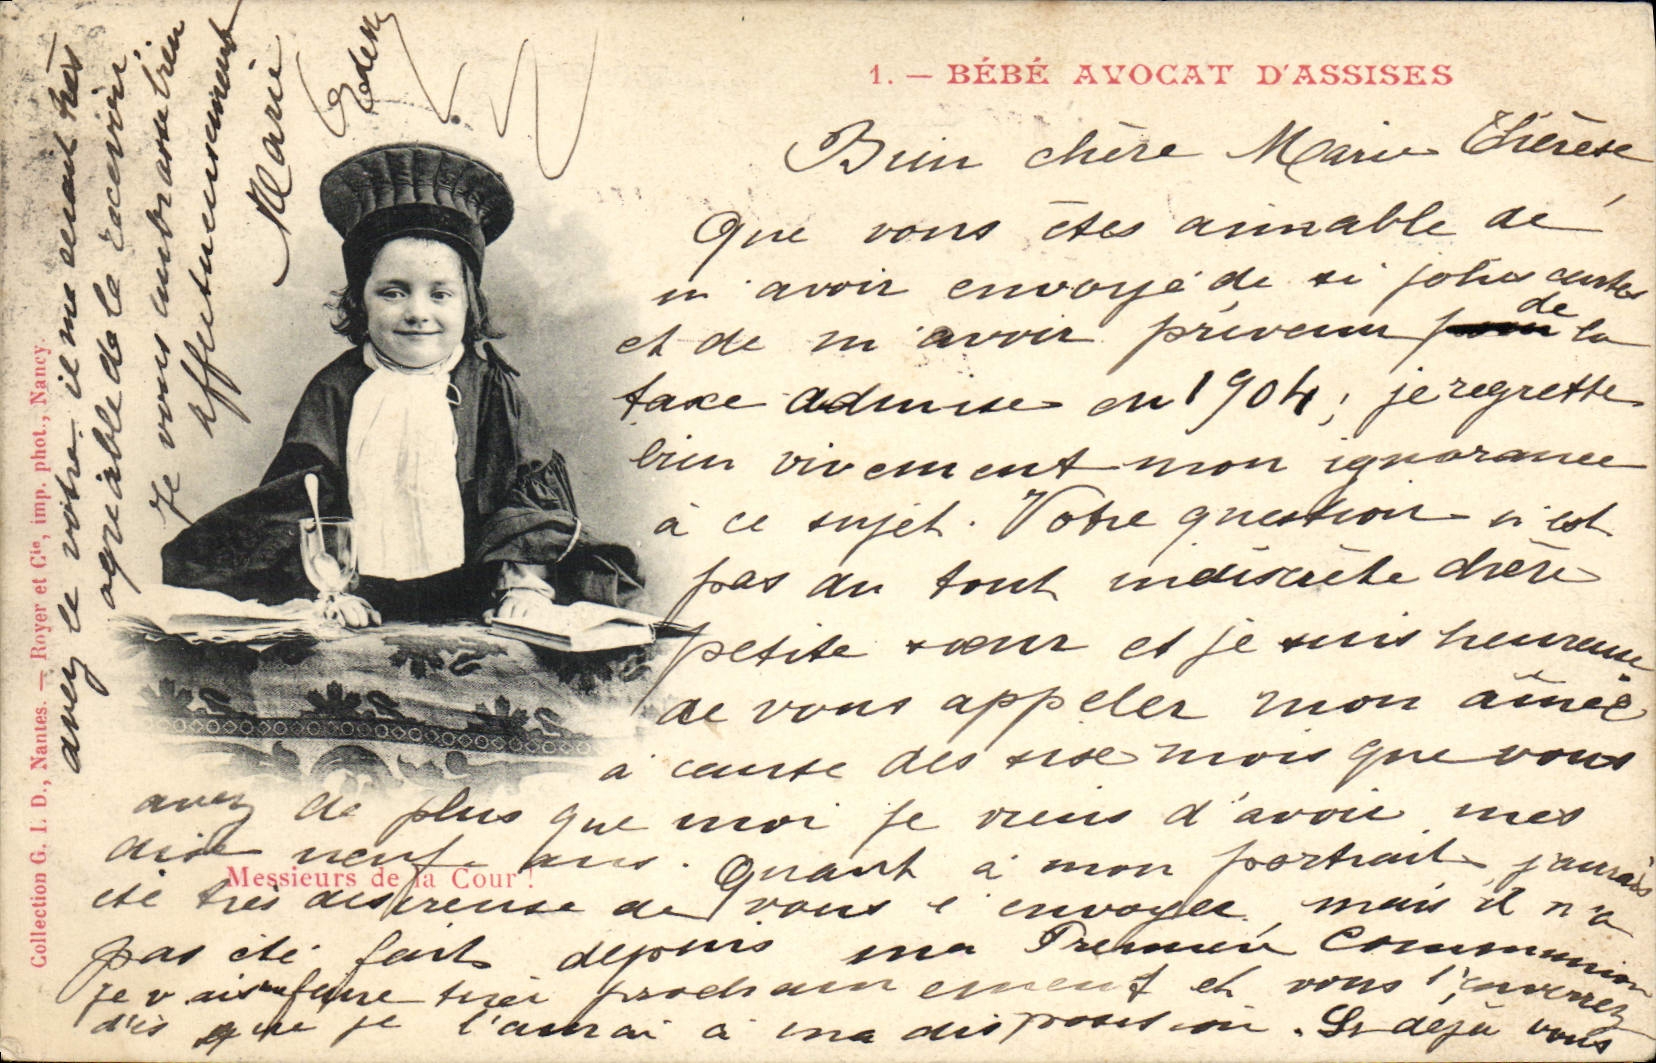 1. — BÉBÉ AVOCAT D'ASSISES
Bien chère Marie Thérèse
Que vous êtes aimable de
m'avoir envoyé de si jolies cartes
et de m'avoir prévenu de la
taxe admise en 1904; je regrette
bien vivement mon ignorance
à ce sujet. Votre question n'est
pas du tout indiscrète chère
petite sœur et je suis heureuse
de vous appeler mon aînée
à cause des six mois que vous
avez de plus que moi je viens d'avoir mes
dix neuf ans. Quant à mon portrait, j'aurais
été très désireuse de vous l'envoyer, mais il n'a
pas été fait depuis ma Première Communion
je vais me faire tirer prochainement et vous l'enverrez
dès que je l'aurai à ma disposition. Si déjà vous
avez le votre, il me serait très
agréable de le recevoir.
Je vous embrasse bien
affectueusement
Marie
Messieurs de la Cour !
Collection G. I. D., Nantes. — Royer et Cie, imp. phot., Nancy.